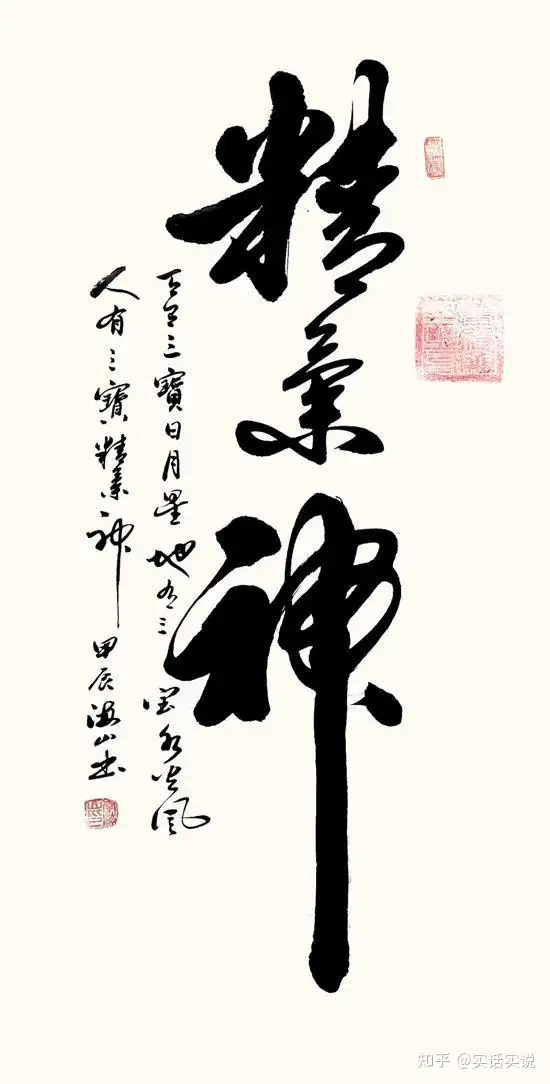 精氣神
天有三寶日月星地有三寶水火風
人有三寶精氣神 甲辰海山书
知乎 @实话实说